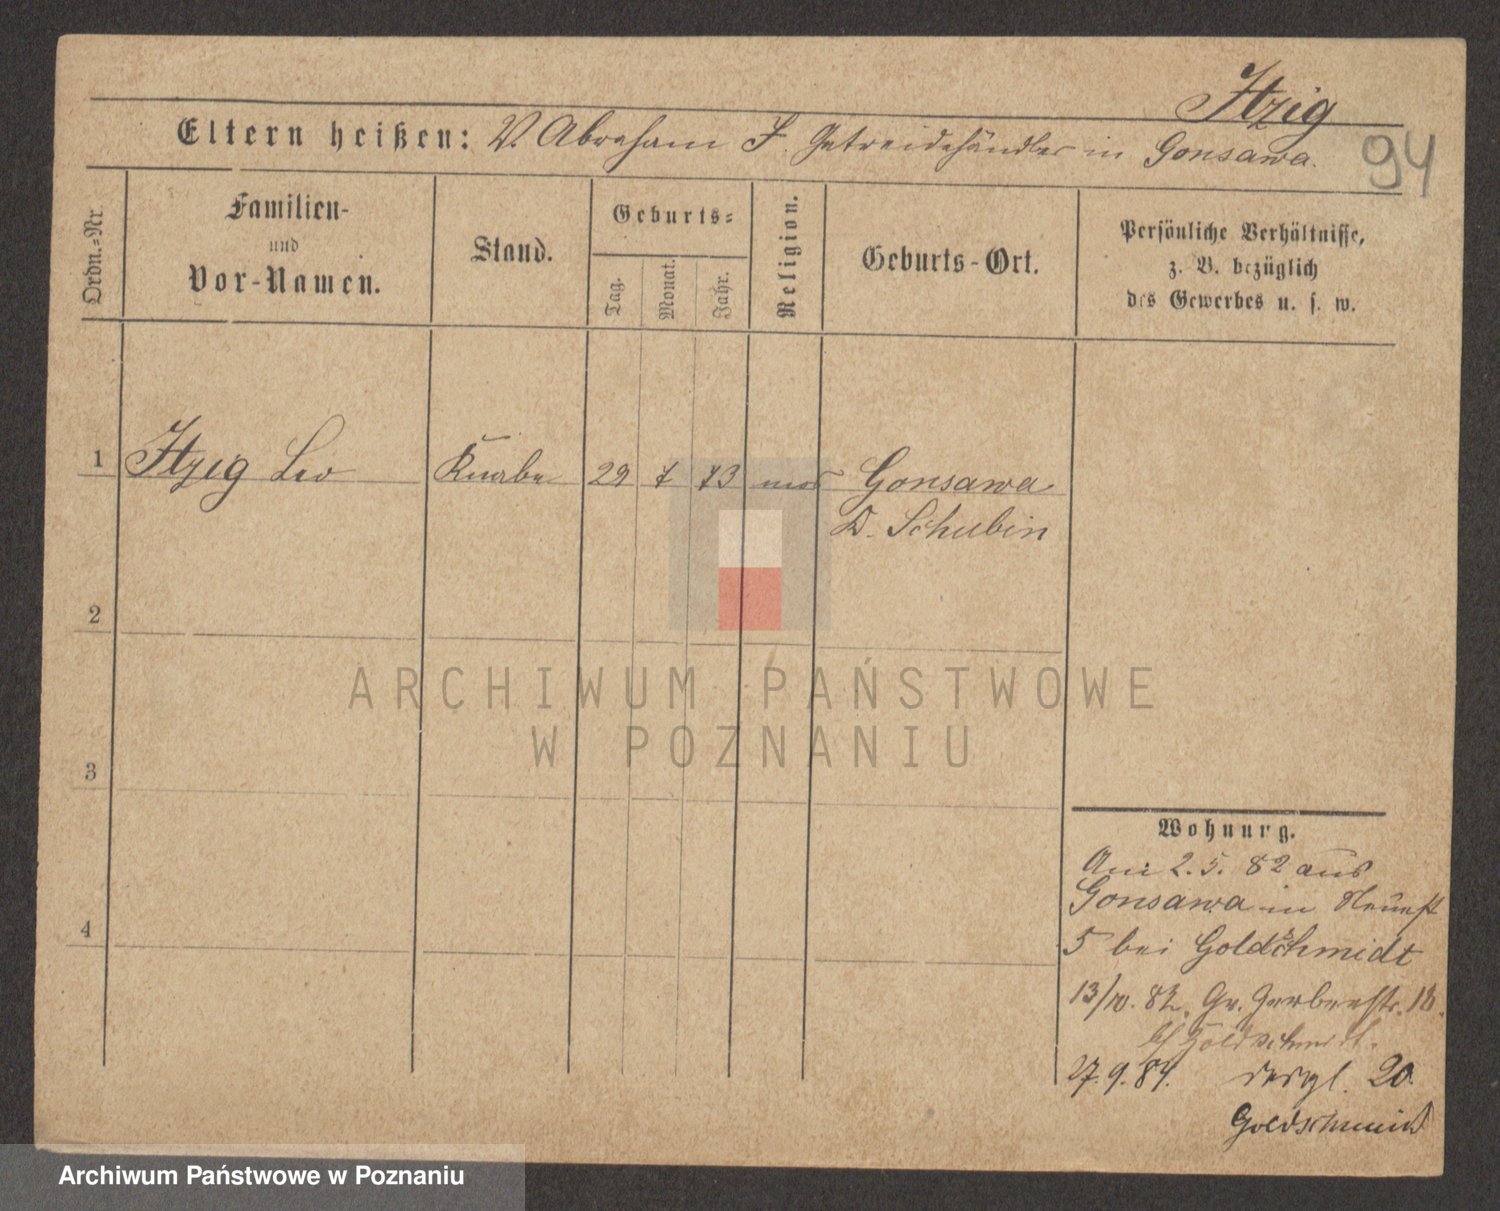 Itzig
Eltern heißen: V. Abraham I. Getreidehändler in Gonsawa.
94
Ordn.=Nr.
Familien-
und
Vor-Namen.
Stand.
Geburts=
Tag.
Monat.
Jahr.
Religion.
Geburts-Ort.
Persönliche Verhältnisse,
z. B. bezüglich
des Gewerbes u. s. w.
1 Itzig Leo Knabe 29 7 73 mos Gonsawa
K. Schubin
2
ARCHIWUM PAŃSTWOWE
W POZNANIU
3
4
Wohnung.
Am 2. 5. 82 aus
Gonsawa in Neuest
5 bei Goldschmidt
13/10. 82. Gr. Gerberstr. 18.
b/ Goldschmidt.
27. 9. 84. desgl. 20.
Goldschmidt
Archiwum Państwowe w Poznaniu